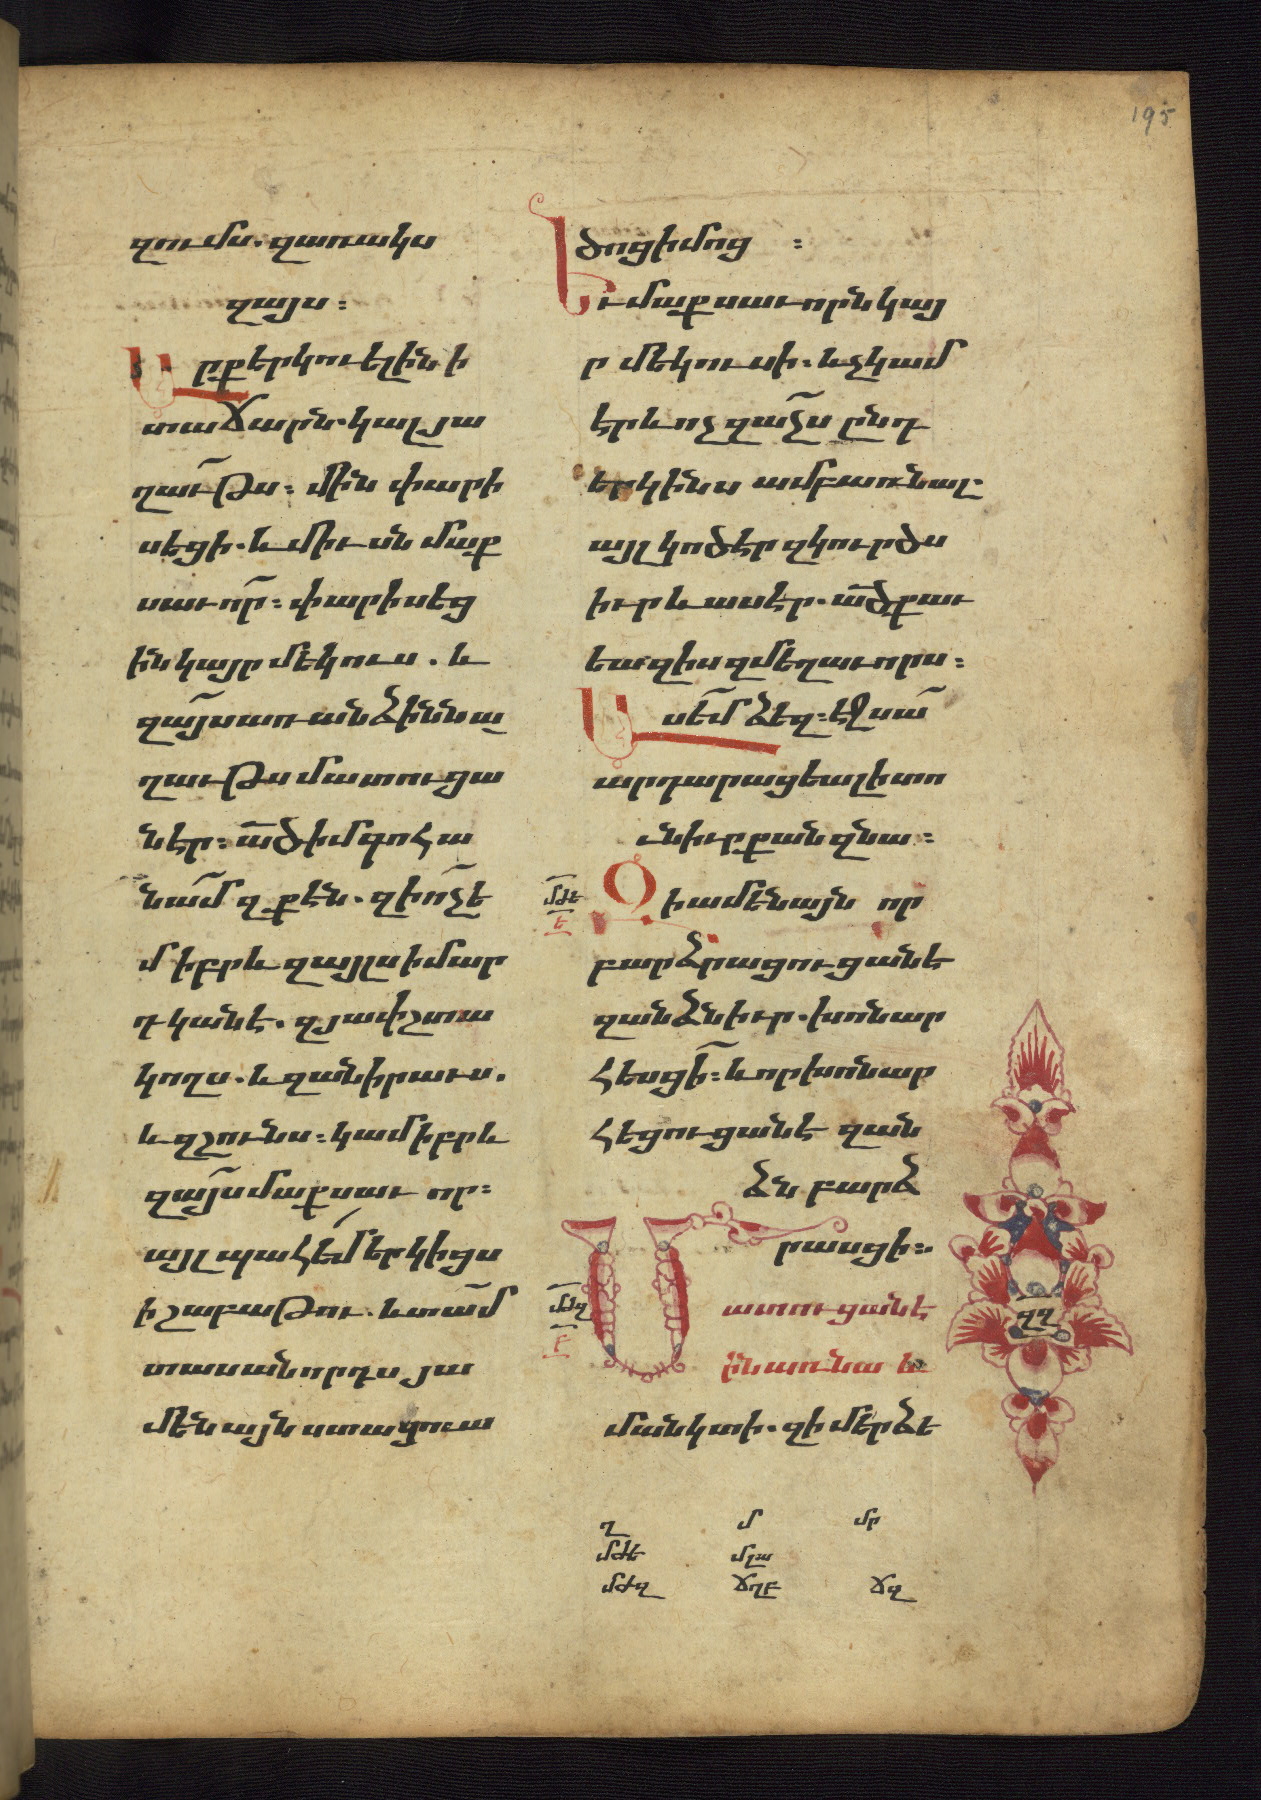 195
զումս. զառակս
զայս:
Արք երկու ելին ի
տաճարն. կալ յա
ղաւթս: մին փարի
սեցի. և միւսն մաք
սաւոր: փարիսեց
ին կայր մեկուս. և
զայս առ անձինն ա
ղաւթս մատուցա
նէր: ած իմ գոհա
նամ զքէն. զի ոչ ե
մ իբրև զայլս ի մար
դկանէ. զյափշտա
կողս. և զանիրաւս.
և զշունս: կամ իբրև
զայս մաքսաւոր:
այլ պահեմ երկիցս
ի շաբաթու. և տամ
տասանորդս յա
մենայն ստացուա
ծոց իմոց:
Եւ մաքսաւորն կայ
ր մեկուսի. և չկամ
էր և ոչ զաչս ընդ
երկինս ամբառնալ.
այլ կոծէր զկուրծս
իւր և ասէր. ած քաւ
եա զիս զմեղաւորս:
Ասեմ ձեզ: էջ սա
արդարացեալ ի տո
ւն իւր քան զնա:
մժե
ե
Զի ամենայն որ
բարձրացուցանէ
զանձն իւր. խոնար
հեսցի: և որ խոնար
հեցուցանէ զան
ձն բարձ
րասցի:
մժզ
բ
Մատուցանե
ին առ նա և
մանկտի. զի մերձե
զղ
ղ մ մր
մժե մլա
մժզ ճղբ ճզ